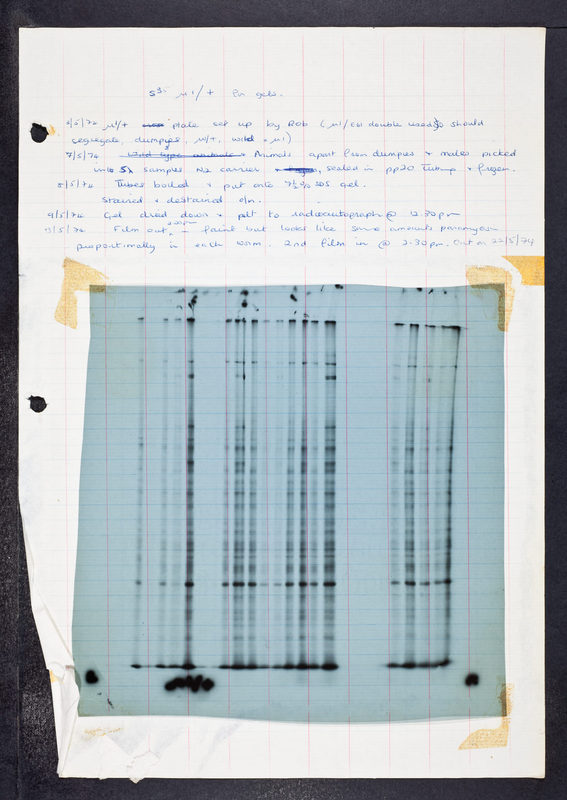 S35 μ1/+ for gels.
6/5/74 μ1/+ plate set up by Rob (μ1/E01 double used so should
segregate, dumpies, μ1/+, wild + μ1)
7/5/74 Animals apart from dumpies + males picked
into 5λ samples N2 carrier + sealed in pp20 tubing + frozen.
8/5/74 Tubes boiled + put onto 7½% SDS gel.
Stained + destained o/n.
9/5/74 Gel dried down + put to radioautograph @ 12.30pm
Film out, – faint but looks like same amounts paramyosin
proportionally in each worm. 2nd film in @ 2.30pm. Out on 22/5/74